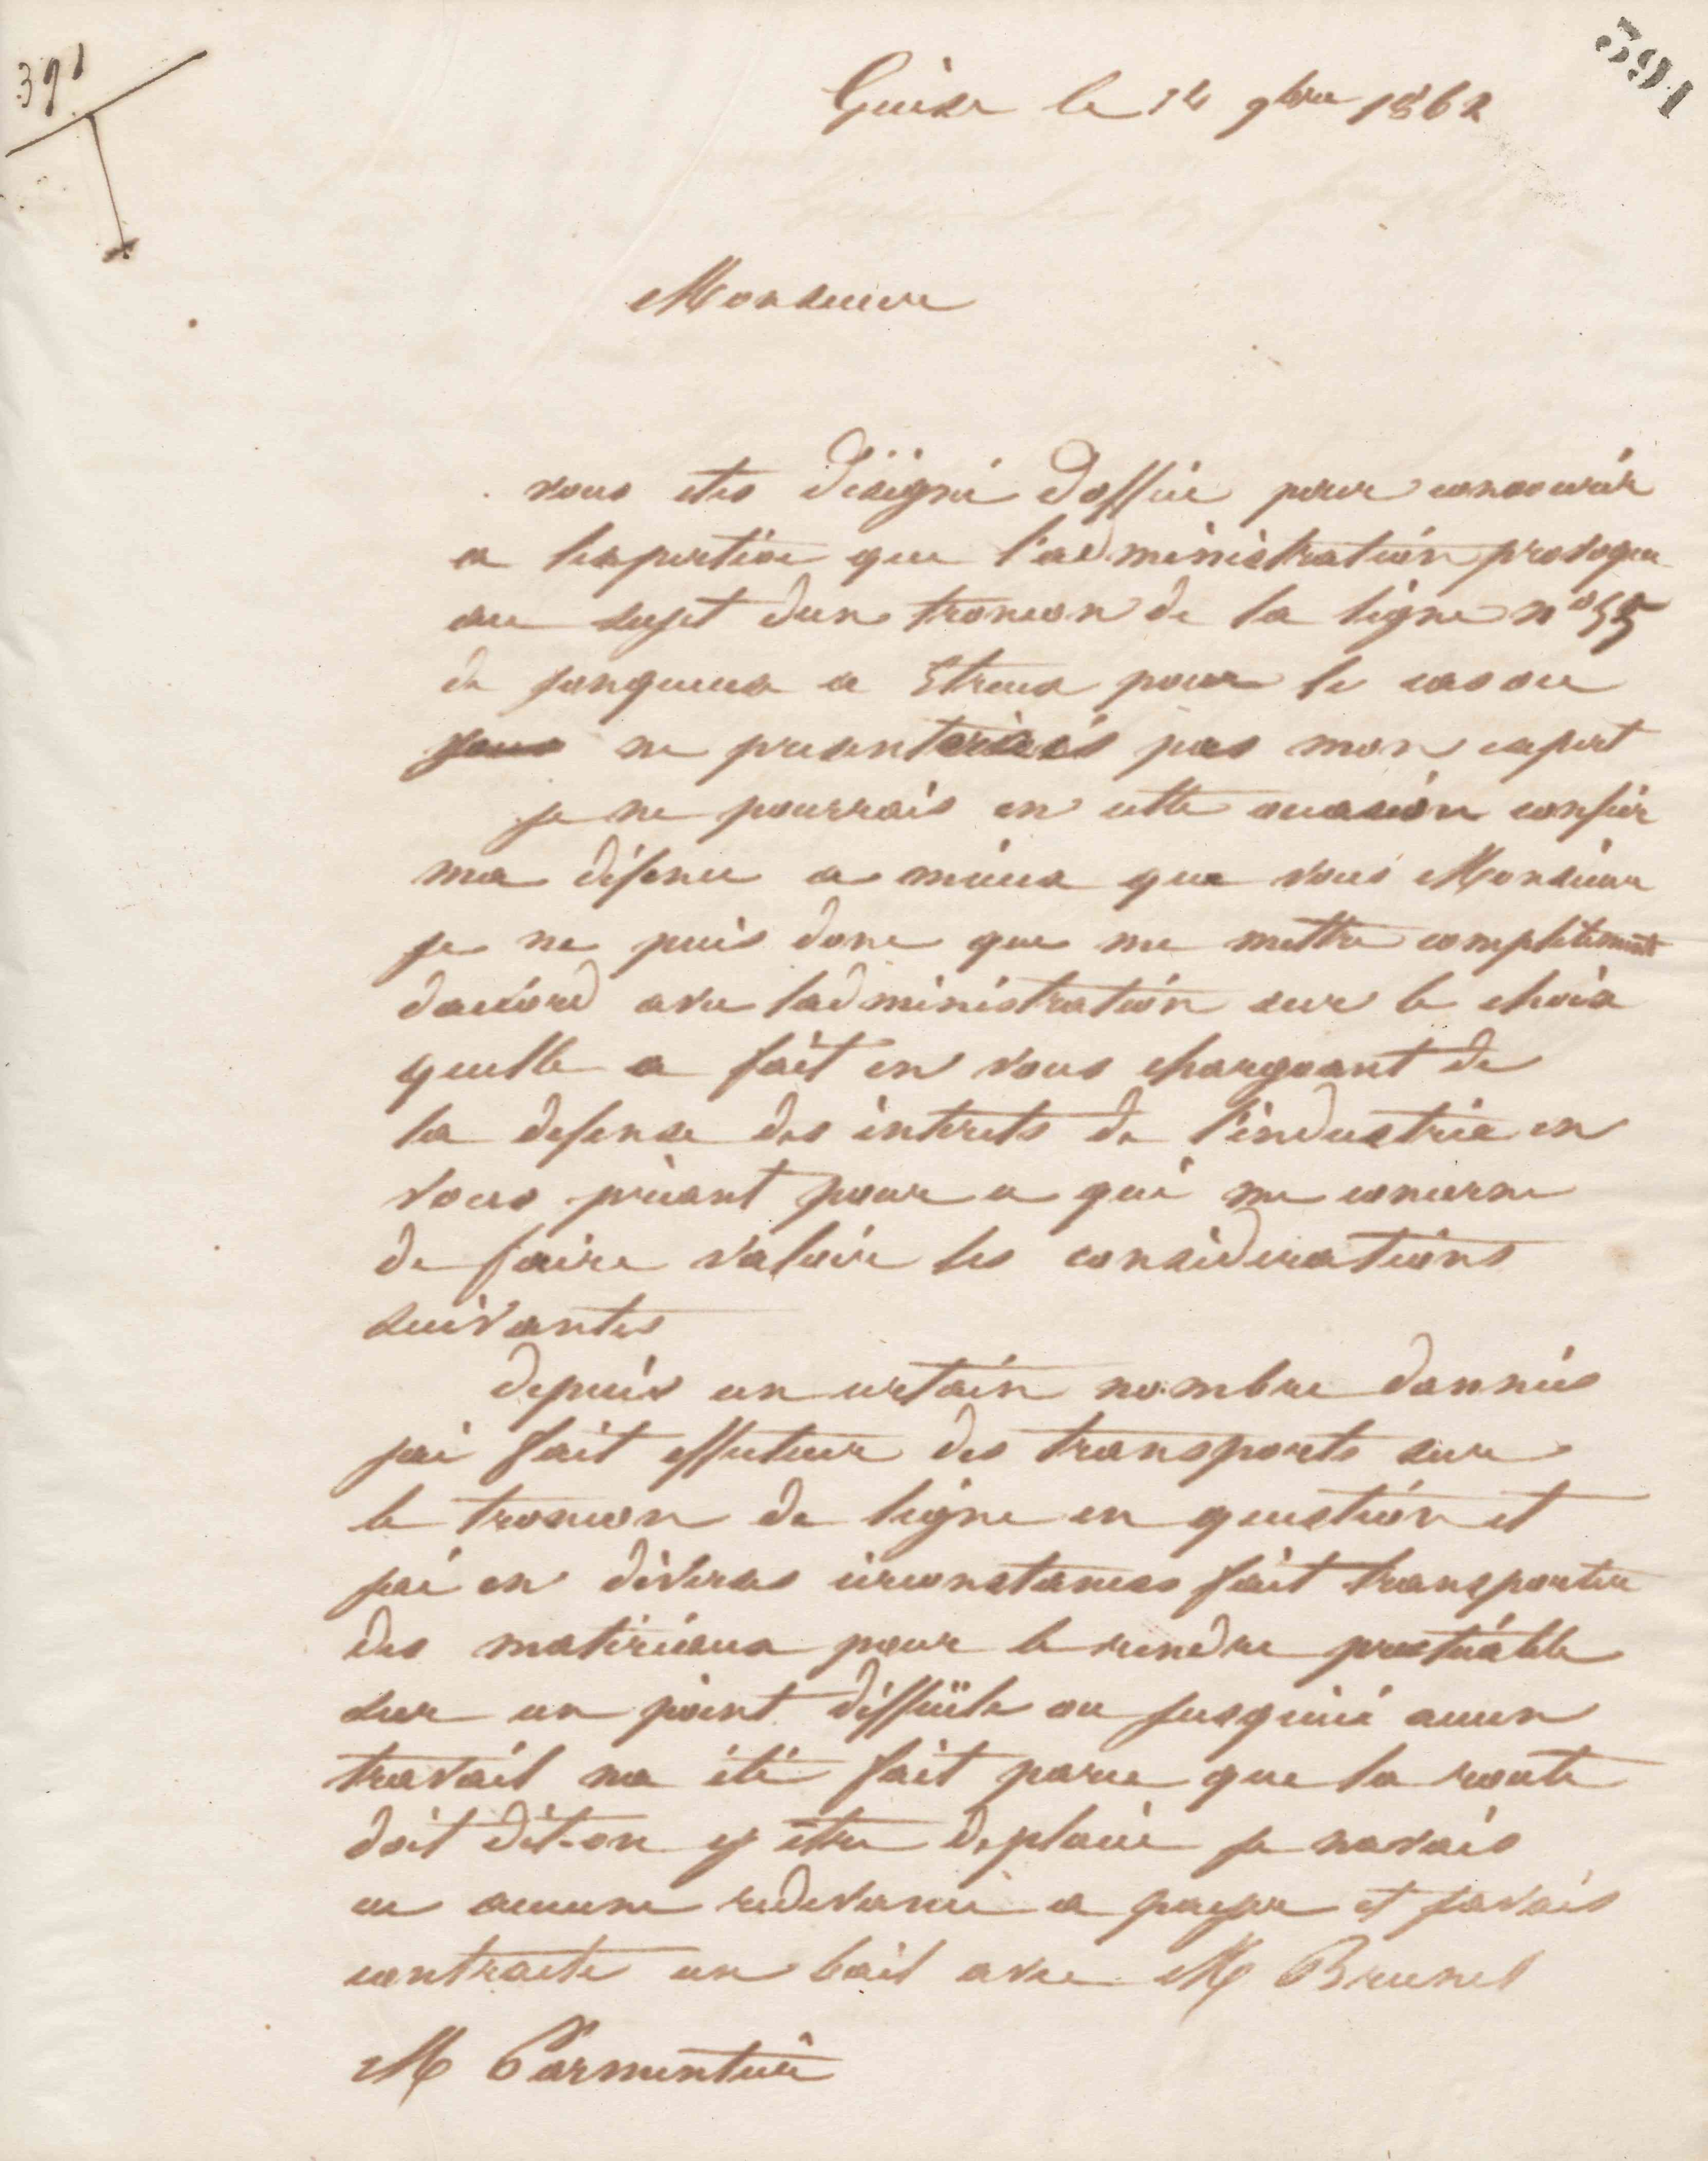 391
391
Guise le 14 9bre 1862
Monsieur
vous etes désigné doffice pour concourir
a lexpertise que l'administration provoque
au sujet dun troncon de la ligne n° 55
de jonqueux a Etreux pour le cas ou
ne presenterais pas mon expert
je ne pourrais en cette occasion confier
ma défense a mieux que vous Monsieur
je ne puis donc que me mettre complètement
daccord avec ladministration sur le choix
quelle a fait en vous chargeant de
la defense des interets de l'industrie en
vous priant pour ce qui me concerne
de faire valoir les considerations
suivantes
depuis un certain nombre dannées
jai fait effectuer des transports sur
le troncon de ligne en question et
jai en diverses circonstances fait transporter
des matériaux pour le rendre praticable
sur un point difficile ou jusquici aucun
travail na été fait parce que la route
doit dit-on y etre déplacée je navais
eu aucune redevance a payer et javais
contracté un bail avec M Brunel
M Parmentier